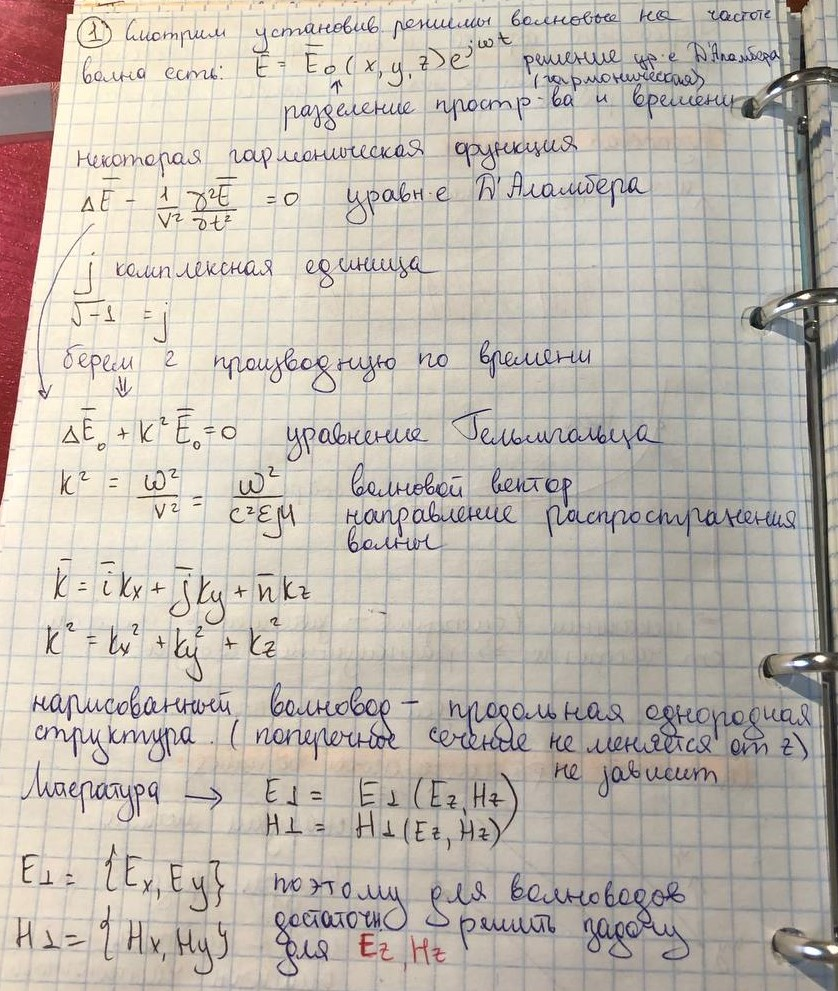 ① Смотрим установив режимы волновые на частоте
волна есть: Ē = Ē₀(x, y, z)e^{jωt} решение ур-е Д'Аламбера
(гармоническая)
↑
разделение простр-ва и времени
некоторая гармоническая функция
ΔĒ − 1/v² ∂²Ē/∂t² = 0 уравн-е Д'Аламбера
j комплексная единица
√-1 = j
берем 2 производную по времени
ΔĒ₀ + k²Ē₀ = 0 уравнение Гельмгольца
k² = ω²/v² = ω²/c²εμ волновой вектор
направление распространения
волны
k̄ = īkx + j̄ky + n̄kz
k² = kx² + ky² + kz²
нарисованный волновод – продольная однородная
структура. (поперечное сечение не меняется от z)
не зависит
Литература → E⊥ = E⊥(Ez, Hz)
H⊥ = H⊥(Ez, Hz)
E⊥ = {Ex, Ey} поэтому для волноводов
достаточно решить задачу
H⊥ = {Hx, Hy} для Ez, Hz